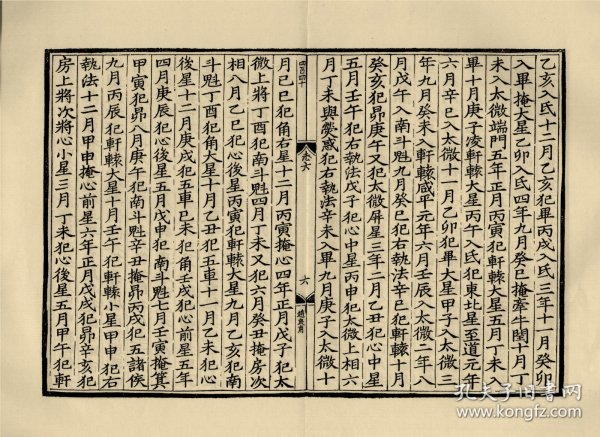 乙亥入氐十二月乙亥犯畢丙戌入氐三年十一月癸卯
入畢掩大星乙卯入氐四年九月癸巳掩牽牛閏十月丁
未入太微端門五年正月丙寅犯軒轅大星五月丁未入
畢十月庚子凌軒轅大星丙午入氐犯東北星至道元年
六月辛巳入太微十一月乙卯犯畢大星甲子入太微三
年九月癸未入軒轅咸平元年六月壬辰入太微二年八
月戊午入南斗魁九月癸巳犯右執法辛巳犯軒轅十月
癸亥犯昴庚午又犯太微屏星三年二月乙丑犯心中星
五月壬午犯右執法戊子犯心中星丙申犯太微上相六
月丁未與熒惑犯右執法辛未入畢九月庚子入太微十
四百四十
卷六
六
月己巳犯角右星十二月丙寅掩心四年正月戊子犯太
微上將丁酉犯南斗魁四月丁未又犯六月癸丑掩房次
相八月乙巳犯心後星丙寅犯軒轅大星九月乙亥犯南
斗魁丁酉犯角大星十月乙丑犯五車十一月乙未犯心
後星十二月庚戌犯五車己未犯角壬戌犯心前星五年
四月庚辰犯心後星五月戊申犯南斗魁七月壬寅掩箕
甲寅犯昴八月庚午犯南斗魁辛丑掩昴丙戌犯五諸侯
九月丙辰犯軒轅大星十月壬午犯軒轅小星甲申犯右
執法十二月甲申掩心前星六年正月戊戌犯昴辛亥犯
房上將次將心小星三月丁未犯心後星五月甲午犯軒
孔夫子旧书网
www.kongfz.com